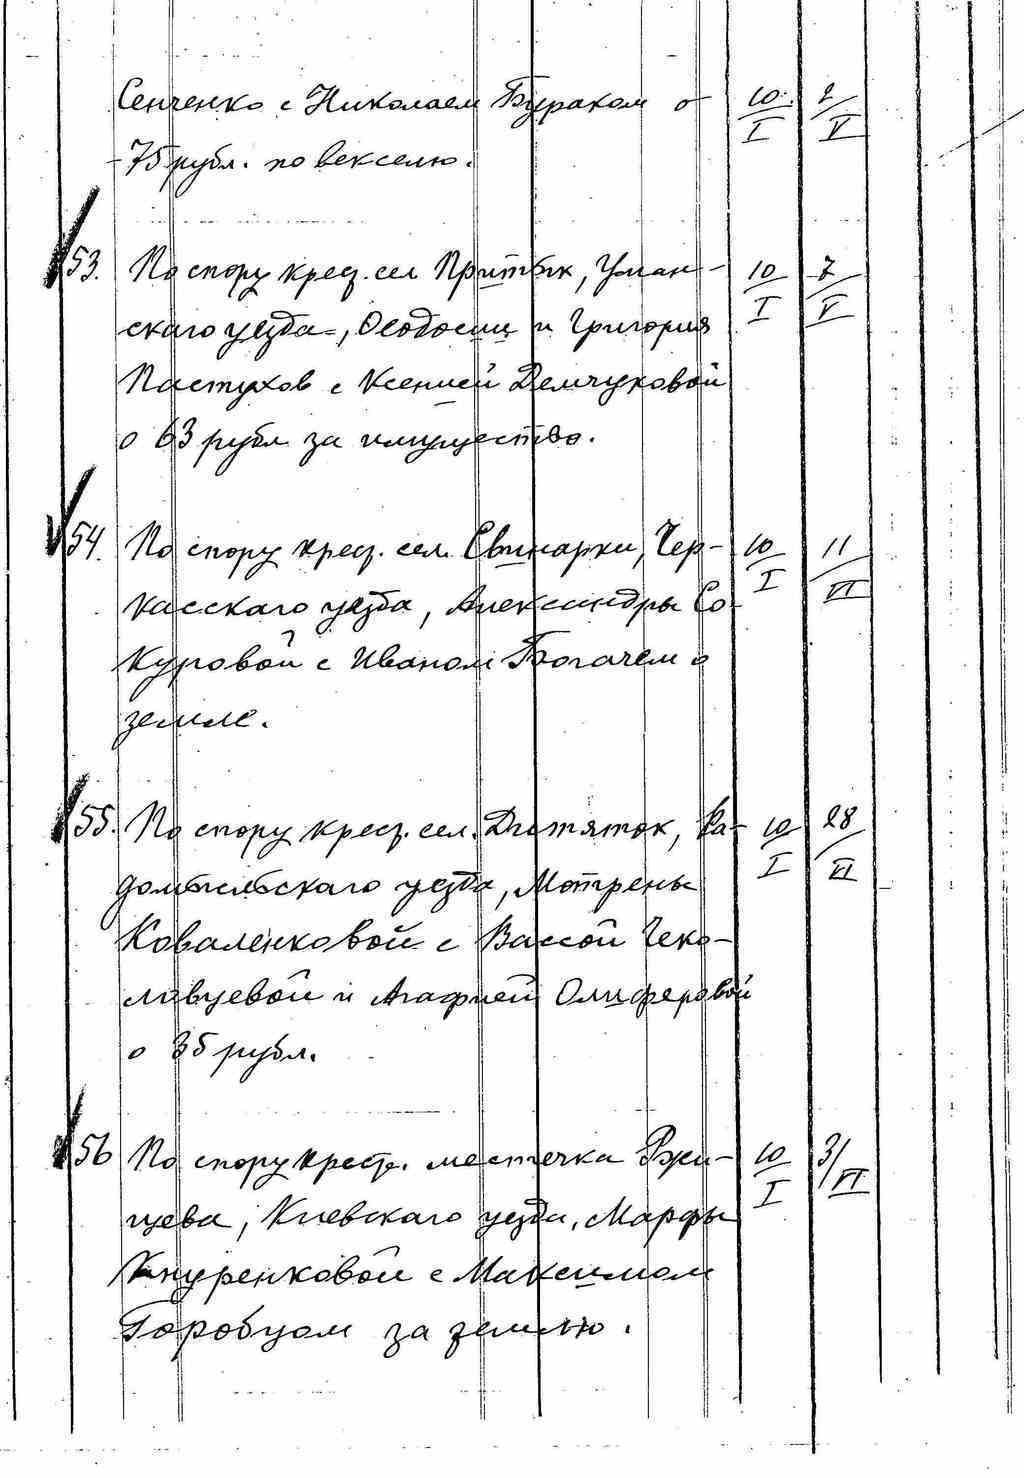 Сенченко с Николаем Бураком о 10/I 2/V
75 рубл. по векселю.
53. По спору крест. сел Притык, Уман- 10/I 7/V
скаго уезда, Феодосии и Григория
Пастухов с Ксенией Демчуковой
о 63 рубл за имущество.
54. По спору крест. сел. Свинарки, Чер- 10/I 11/VI
касскаго уезда, Александры Со-
куровой с Иваном Богачем о
земле.
55. По спору крест. сел. Дитяток, Ра- 10/I 28/VI
домысльскаго уезда, Мотрены
Коваленковой с Вассой Чеко-
ловцевой и Агафией Олиферовой
о 35 рубл.
56 По спору крест. местечка Ржи- 10/I 3/VI
щева, Киевскаго уезда, Марфы
Кнуренковой с Максимом
Горобцом за землю.